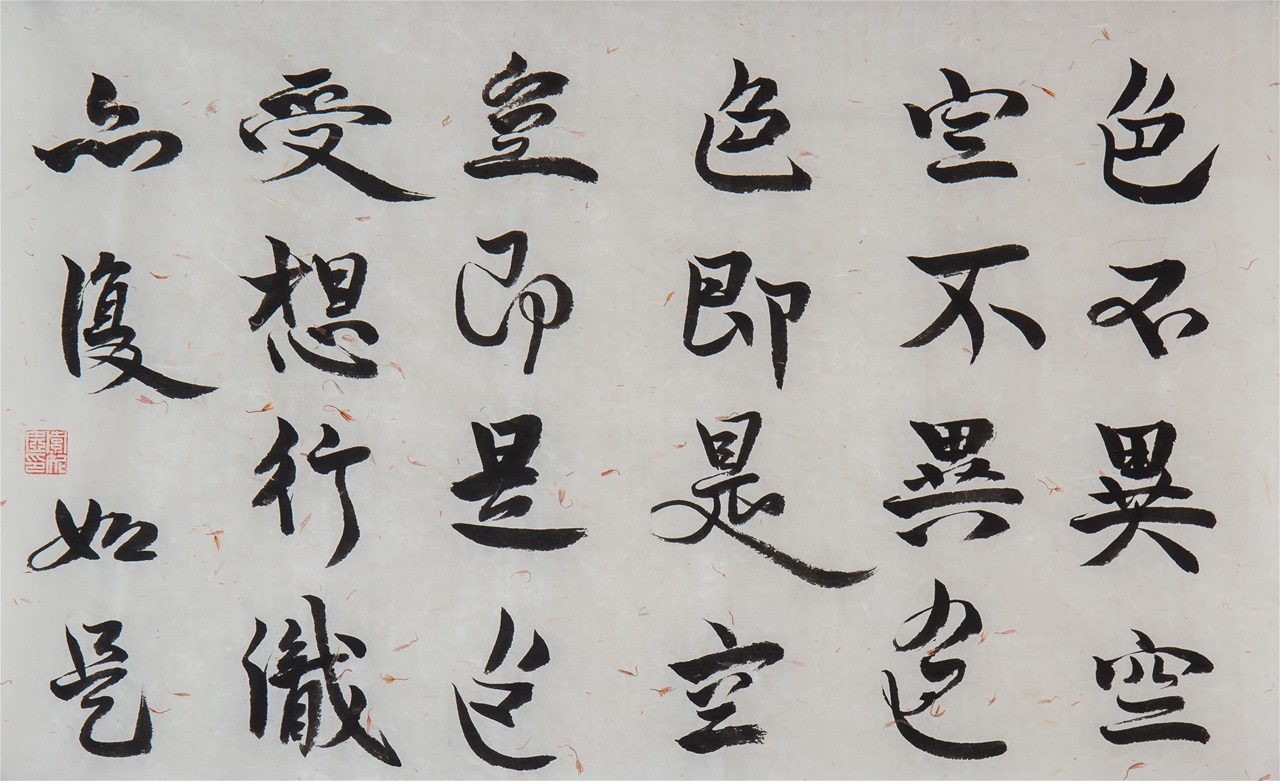 色不異空
空不異色
色即是空
空即是色
受想行識
亦復如是